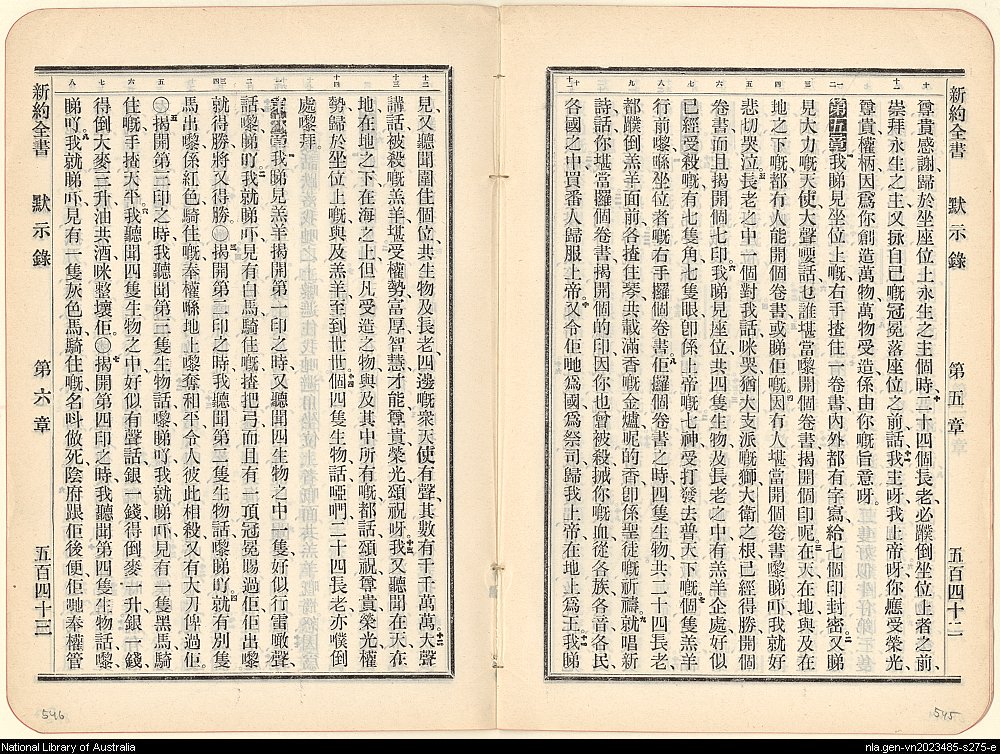 新約全書 默示錄 第五章 五百四十二
尊貴感謝歸於坐座位上永生之主個時二十四個長老必蹼倒坐位上者之前
崇拜永生之主又揼自己嘅冠冕落座位之前話我主呀我上帝呀你應受榮光
尊貴權柄因爲你創造萬物萬物受造係由你嘅旨意呀
第五章我睇見坐位上嘅右手揸住一卷書內外都有字寫給七個印封密又睇
見大力嘅天使大聲嘜話乜誰堪當嚟開個卷書揭開個印呢在天在地與及在
地之下嘅都冇人能開個卷書或睇佢嘅因冇人堪當開個卷書嚟睇吓我就好
悲切哭泣長老之中一個對我話咪哭猶大支派嘅獅大衛之根已經得勝開個
卷書而且揭開個七印我睇見座位共四隻生物及長老之中有羔羊企處好似
已經受殺嘅有七隻角七隻眼卽係上帝嘅七神受打發去普天下嘅個隻羔羊
行前嚟喺坐位者嘅右手攞個卷書佢攞個卷書之時四隻生物共二十四長老
都蹼倒羔羊面前各揸住琴共載滿香嘅金爐呢的香卽係聖徒嘅祈禱就唱新
詩話你堪當攞卷書揭開個的印因你也曾被殺搣你嘅血從各族各音各民
各國之中買番人歸服上帝又令佢哋爲國爲祭司歸我上帝在地上爲王我睇
五百四十三 第六章 默示錄 新約全書
見又聽聞圍住個位共生物及長老四邊嘅衆天使有聲其數有千千萬萬大聲
講話被殺嘅羔羊堪受權勢富厚智慧才能尊貴榮光頌祝呀我又聽聞在天在
地在地之下在海之上但凡受造之物與及其中所有嘅都話頌祝尊貴榮光權
勢歸於坐位上嘅與及羔羊至到世世個四隻生物話啞們二十四長老亦噗倒
處嚟拜
第六章我睇見羔羊揭開第一印之時又聽聞四生物之中一隻好似行雷噉聲
話嚟睇吖我就睇吓見有白馬騎住嘅揸把弓而且有一頂冠冕賜過佢佢出嚟
就得勝將又得勝○揭開第二印之時我聽聞第二隻生物話嚟睇吖就有別隻
馬出嚟係紅色騎住嘅奉權喺地上嚟奪和平令人彼此相殺又有大刀俾過佢
○揭開第三印之時我聽聞第三隻生物話嚟睇吖我就睇吓見有一隻黑馬騎
住嘅手揸天平我聽聞四隻生物之中好似有聲話銀一錢得倒麥一升銀一錢
得倒大麥三升油共酒咪整壞佢○揭開第四印之時我聽聞第四隻生物話嚟
睇吖我就睇吓見有一隻灰色馬騎住嘅名叫做死陰府跟佢後便佢哋奉權管
546
545
National Library of Australia
nla.gen-vn2023485-s275-e